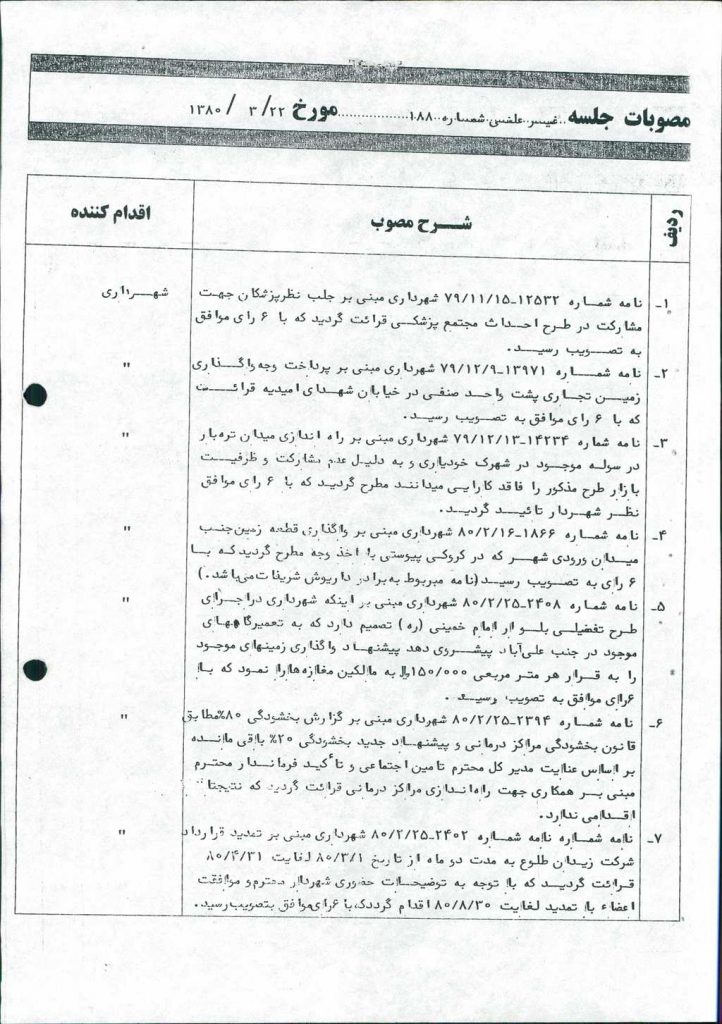 مصوبات جلسه ..غیر..علنی.شماره..۱۸۸.................مورخ ۲۲/ ۳ / ۱۳۸۰
ردیف
شرح مصوب
اقدام کننده
۱- نامه شماره ۱۲۵۳۲-۷۹/۱۱/۱۵ شهرداری مبنی بر جلب نظرپزشکان جهت
شهرداری
مشارکت در طرح احداث مجتمع پزشکی قرائت گردید که با ۶ رای موافق
به تصویب رسید.
۲- نامه شماره ۱۳۹۷۱-۷۹/۱۲/۹ شهرداری مبنی بر پرداخت وجه واگذاری
"
زمین تجاری پشت واحد صنفی در خیابان شهدای امیدیه قرائت
که با ۶ رای موافق به تصویب رسید.
۳- نامه شماره ۱۴۲۳۴-۷۹/۱۲/۱۳ شهرداری مبنی بر راه اندازی میدان تره بار
"
در سوله موجود در شهرک خودیاری و به دلیل عدم مشارکت و ظرفیت
بازار طرح مذکور را فاقد کارایی میدانند مطرح گردید که با ۶ رای موافق
نظر شهردار تائید گردید.
۴- نامه شماره ۱۸۶۶-۸۰/۲/۱۶ شهرداری مبنی بر واگذاری قطعه زمین جنب
"
میدان ورودی شهر که در کروکی پیوستی با اخذ وجه مطرح گردید که با
۶ رای به تصویب رسید(نامه مربوط به برادر داریوش شریفات می باشد.)
۵- نامه شماره ۲۴۰۸-۸۰/۲/۲۵ شهرداری مبنی بر اینکه شهرداری در اجرای
"
طرح تفضیلی بلوار امام خمینی (ره) تصمیم دارد که به تعمیرگاههای
موجود در جنب علی آباد پیشروی دهد پیشنهاد واگذاری زمینهای موجود
را به قرار هر متر مربعی ۱۵۰/۰۰۰ ریال به مالکین مغازه هارا نمود که با
۶رای موافق به تصویب رسید .
۶- نامه شماره ۲۳۹۴-۸۰/۲/۲۵ شهرداری مبنی بر گزارش بخشودگی ۸۰%مطابق
"
قانون بخشودگی مراکز درمانی و پیشنهاد جدید بخشودگی ۲۰% باقی مانده
بر اساس عنایت مدیر کل محترم تامین اجتماعی و تأکید فرماندار محترم
مبنی بر همکاری جهت راه اندازی مراکز درمانی قرائت گردید که نتیجتا"
اقدامی ندارد.
۷- نامه شماره نامه شماره ۲۴۰۲-۸۰/۲/۲۵ شهرداری مبنی بر تمدید قرارداد
"
شرکت زیدان طلوع به مدت دو ماه از تاریخ ۸۰/۳/۱ لغایت ۸۰/۴/۳۱
قرائت گردید که با توجه به توضیحات حضوری شهردار محترم و موافقت
اعضاء با تمدید لغایت ۸۰/۸/۳۰ اقدام گردد که با ۶رای موافق بتصویب رسید.